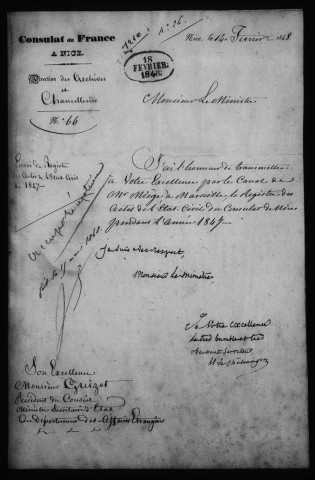 Consulat de France
A NICE.
Direction des Archives
et Chancelleries
N.º 66
Nice, le 14 Février 1848
18
FEVRIER
1848
Monsieur Le Ministre
Envoi du Registre
des Actes de l'Etat-Civil
de 1847
J'ai l'honneur de transmettre
à Votre Excellence par le Canal de
Mr. Miège de Marseille le Registre des
Actes de l'Etat Civil du Consulat de Nice
pendant l'Année 1847
Je suis avec respect,
Monsieur Le Ministre
De Votre Excellence
Le très humble et très
obéissant serviteur
Son Excellence
Monsieur Guizot
Président du Conseil
Ministre Secrétaire d'Etat
au Département des Affaires Etrangères